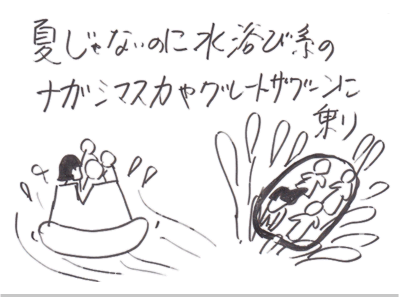 夏じゃないのに水浴び系の
ナガシマスカやグレートザブーンに
乗り